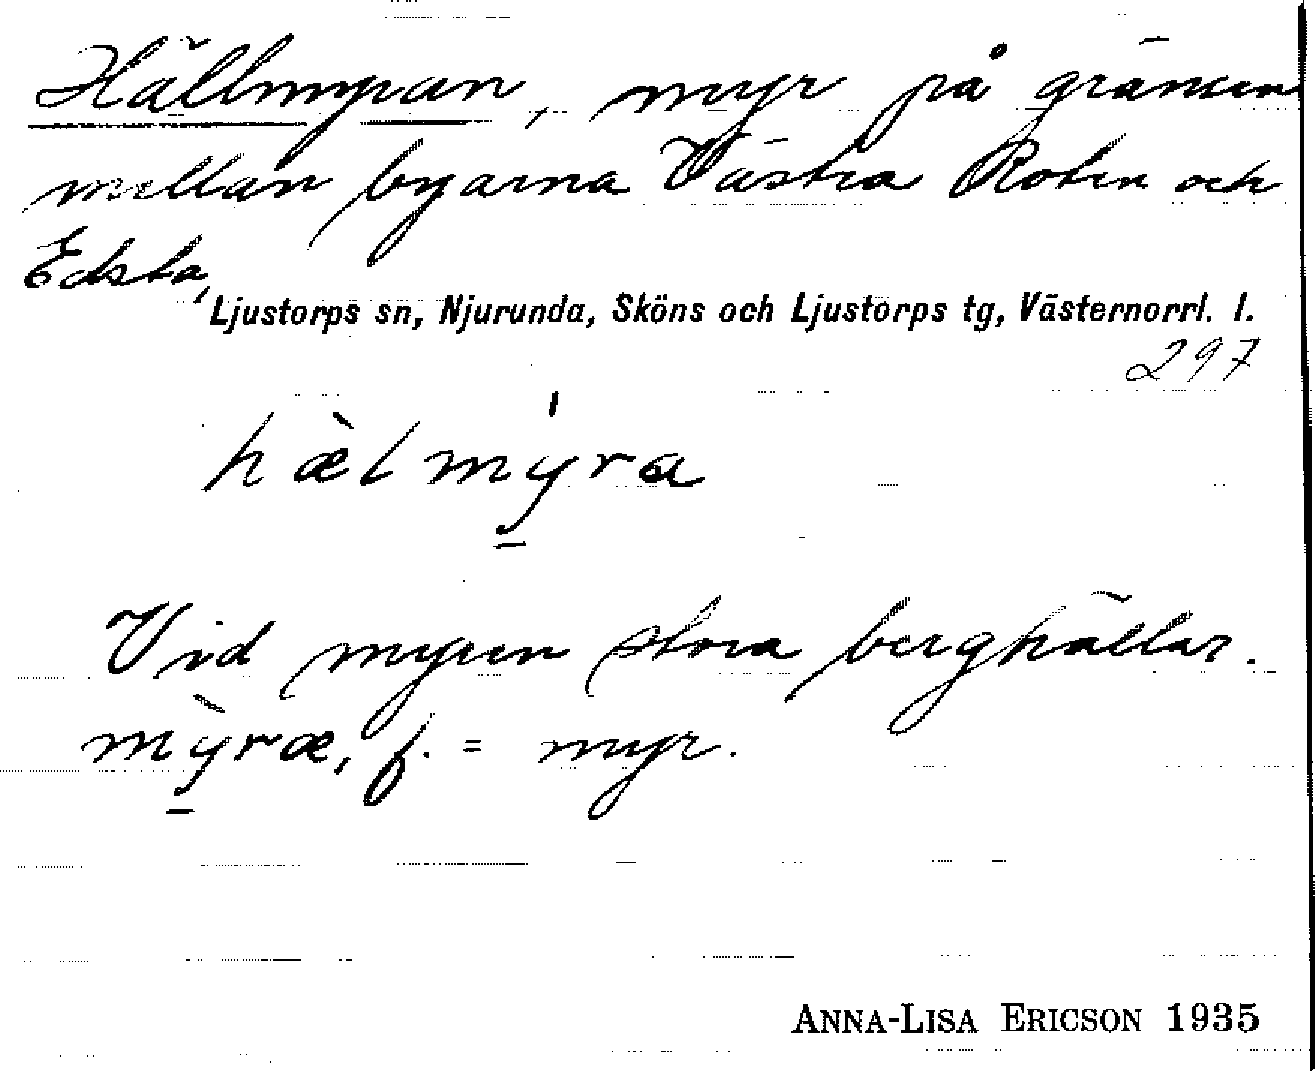 Hällmyran, myr på gränsen
mellan byarna Västra Roten och
Edsta,
Ljustorps sn, Njurunda, Sköns och Ljustorps tg, Västernorrl. l.
297
hæ̀lmy̱̍ra
Vid myren stora berghällar.
mỳ̱ræ, f. = myr.
ANNA-LISA ERICSON 1935